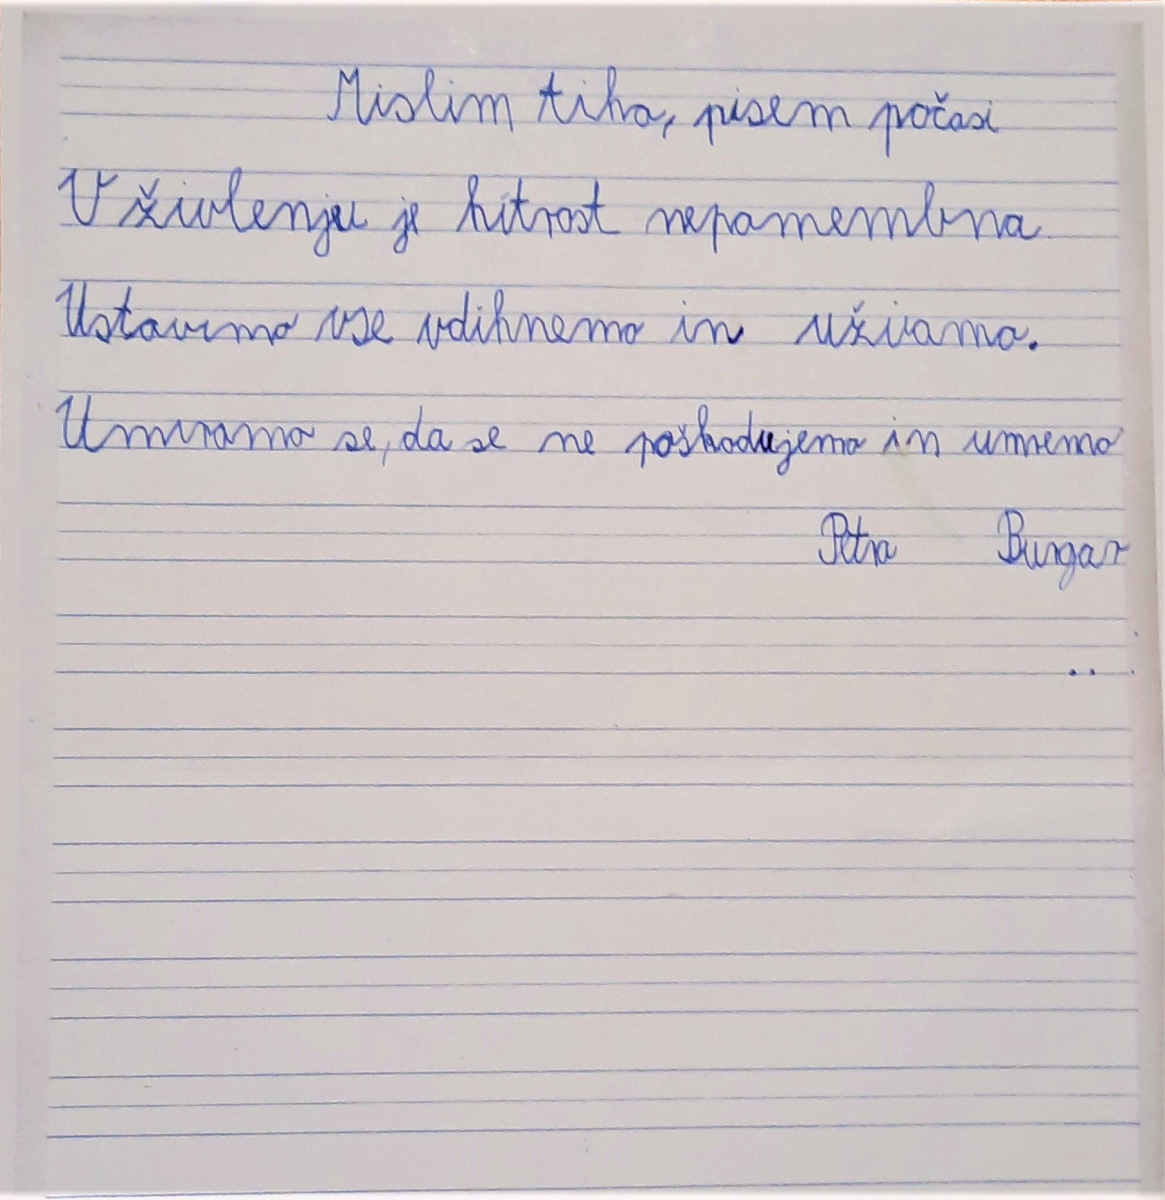 Mislim tiho, pisem počasi
V živlenju je hitrost nepomembna.
Ustavimo vse vdihnemo in uživamo.
Umiramo se, da se ne poškodujemo in umremo
Petra Bungar